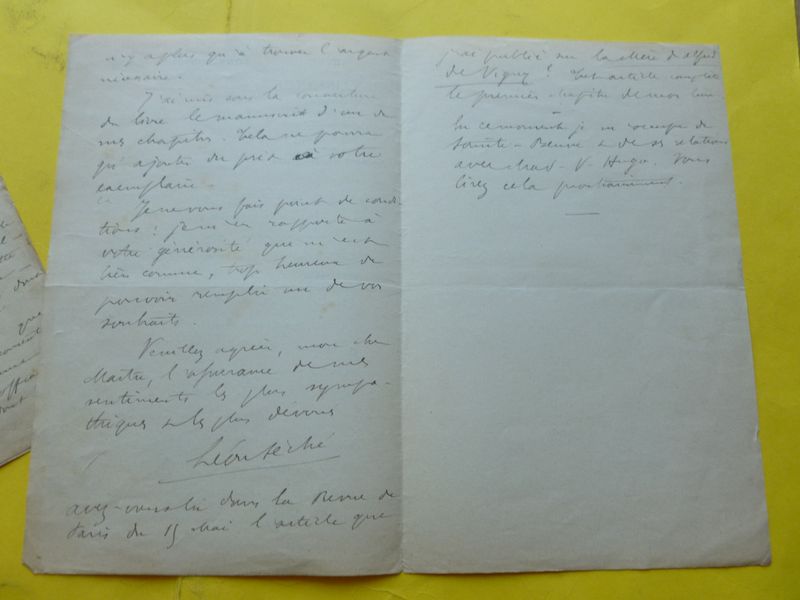 n'y a plus qu'à trouver l'argent
nécessaire.
J'ai mis sous la couverture
du livre le manuscrit d'un de
mes chapitres. Cela ne pourra
qu'ajouter du prix à votre
exemplaire.
Je ne vous fais point de condi-
tions : je m'en rapporte à
votre générosité qui m'est
bien connue, trop heureux de
pouvoir remplir un de vos
souhaits.
Veuillez agréer, mon cher
Maître, l'assurance de mes
sentiments les plus sympa-
thiques et les plus dévoués
Léon Séché
avez-vous lu dans la Revue de
Paris du 15 Mai l'article que
j'ai publié sur la Mère d'Alfred
de Vigny ? Cet article complète
le premier chapitre de mon livre
En ce moment je m'occupe de
Sainte-Beuve & de ses relations
avec Mad. V. Hugo. Vous
lirez cela prochainement.
que